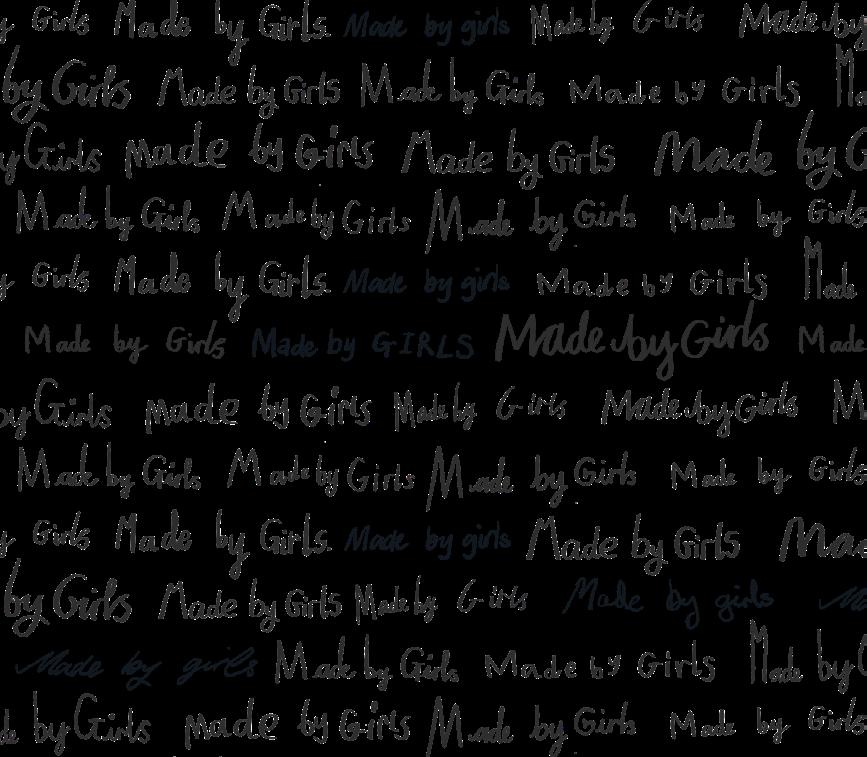 y Girls Made by Girls Made by girls Made by Girls Made by
by Girls Made by Girls Made by Girls Made by Girls Ma
y Girls Made by Girls Made by Girls Made by G
Made by Girls Made by Girls Made by Girls Made by Girls
y Girls Made by Girls Made by girls Made by Girls Made
Made by Girls Made by GIRLS Made by Girls Made
by Girls Made by Girls Made by Girls Made by Girls M
Made by Girls Made by Girls Made by Girls Made by Girls
y Girls Made by Girls Made by girls Made by Girls Mad
by Girls Made by Girls Made by Girls Made by girls M
Made by girls Made by Girls Made by Girls Made by G
de by Girls Made by Girls Made by Girls Made by Girls